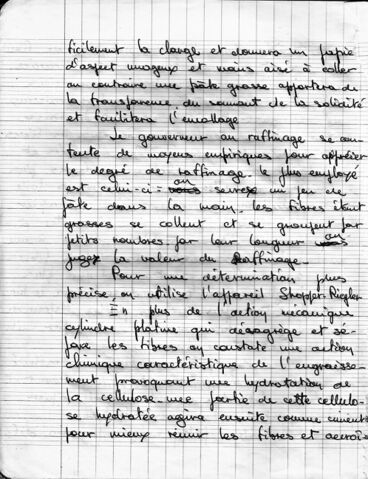 ficilement la charge et donnera un papier
d'aspect nuageux et moins aisé à coller
au contraire une pâte grasse apportera de
la transparence du sonnant de la solidité
et facilitera l'encollage
Le gouverneur au raffinage se con-
tente de moyens empiriques pour apprécier
le degré de raffinage. le plus employé
est celui-ci = on serre un peu de
pâte dans la main, les fibres étant
grasses se collent et se groupent par
petits nombres par leur longueur on
juge la valeur du Raffinage.
Pour une détermination plus
précise, on utilise l'appareil Shopper Riegler
En plus de l'action mécanique
cylindre platine qui désagrège et sé-
pare les fibres on constate une action
chimique caractéristique de l'engraisse-
ment provoquant une hydratation de
la cellulose. une partie de cette cellulo-
se hydratée agira ensuite comme ciment
pour mieux réunir les fibres et accroî